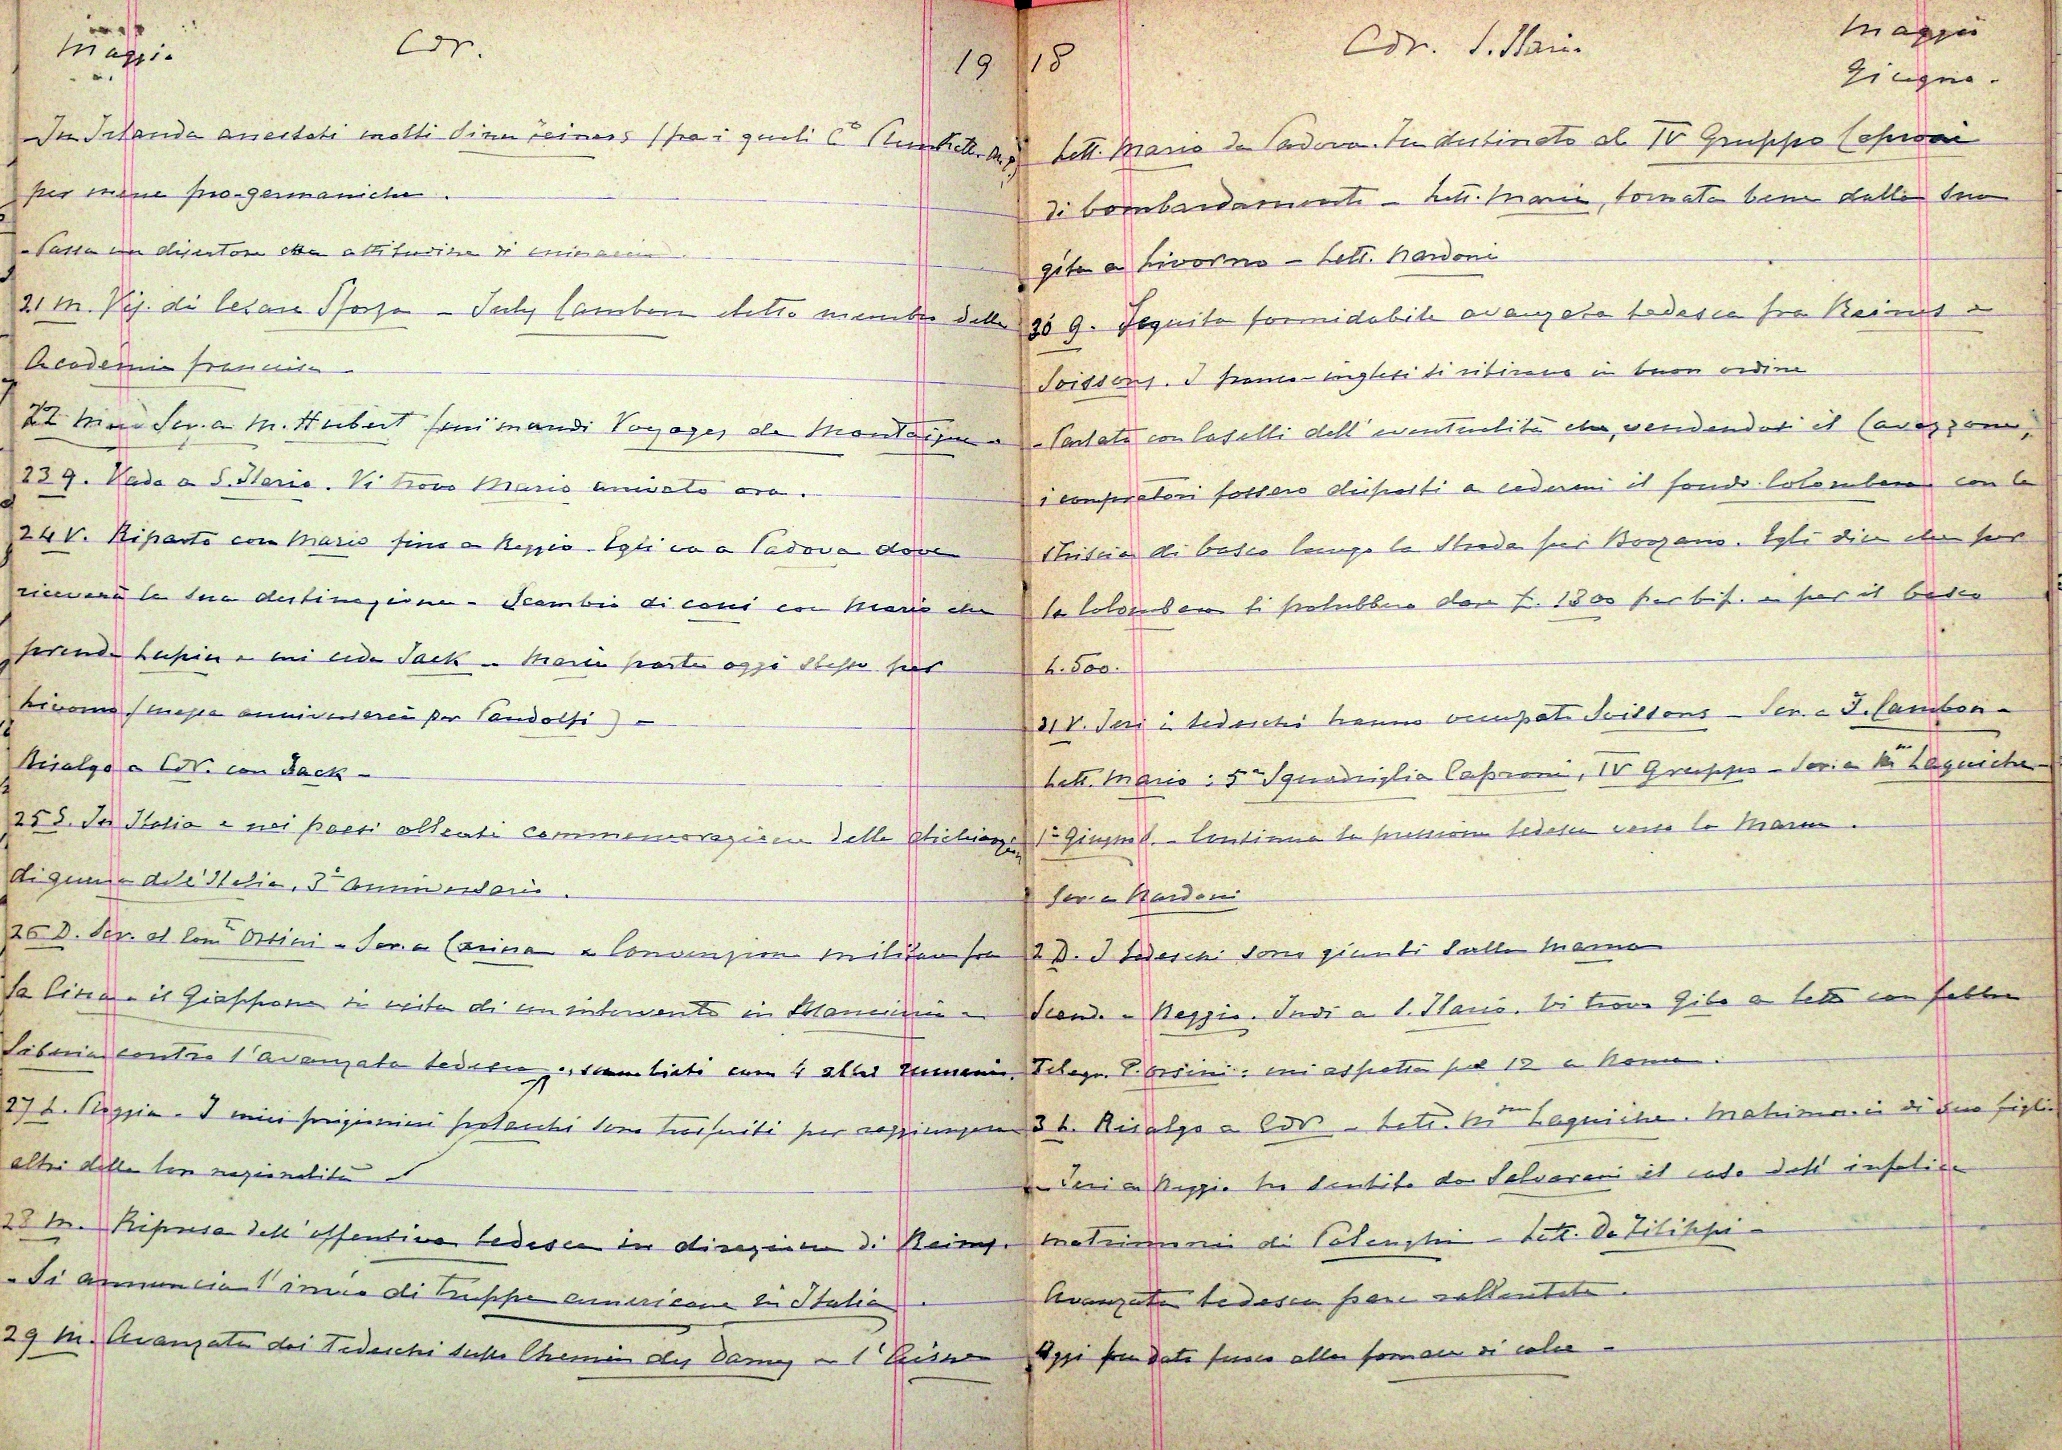 Maggio Cor. 19
-In Irlanda arrestati molti Sinn Feiners (fra i quali C.te Plunkett
per mene pro-germaniche.
-Passa un disertore
21 M. Vis. di Cesare Sforza - July Cambon eletto membro della
Academia francese -
22 Mer. Scr. a M. Hubert mi mandi Voyages de Montaigne -
23 g. Vado a S. Ilario. Vi trovo Mario arrivato ora.
24 V. Riparto con Mario fino a Reggio. Egli va a Padova dove
riceverà la sua destinazione - Scambio di cani con Mario che
prende Lupin e mi cede Jack - Maria parte oggi stesso per
Livorno (messa anniversario per Pandolfi) -
Risalgo a Cor. con Jack -
25 S. In Italia e nei paesi alleati commemorazione della dichiarazione
di guerra dell'Italia, 3° anniversario.
26 D. Scr. al Com.te Orsini - Scr. a Carina - Convenzione militare fra
la Cina e il Giappone in vista di un intervento in Manciuria -
Siberia contro l'avanzata tedesca, scambiati con 4 altri rumeni.
27 L. Pioggia. I miei prigionieri polacchi sono trasferiti per raggiungere
altri della loro nazionalità
28 M. Ripresa dell'offensiva tedesca in direzione di Reims.
- Si annuncia l'invio di truppe americane in Italia.
29 M. Avanzata dei Tedeschi sullo Chemin des Dames e l'Aisne
18 Cor. S. Ilario Maggio
Giugno.
Lett. Mario da Padova. Fu destinato al IV Gruppo Caproni
di bombardamento - Lett. Maria, tornata bene dalla sua
gita a Livorno - Lett. Nardoni
30 g. Seguita formidabile avanzata tedesca fra Reims e
Soissons. I franco-inglesi si ritirano in buon ordine
- Parlato con Caselli dell'eventualità che, vendendosi il Cavazzone,
i compratori fossero disposti a cedermi il fondo Colombara con la
striscia di bosco lungo la strada per Borzano. Egli dice che per
la Colombara si potrebbero dare £. 1300 per bif. e per il bosco
L. 500.
31 V. Ieri i tedeschi hanno occupato Soissons - Scr. a J. Cambon -
Lett. Mario: 5a Squadriglia Caproni, IV Gruppo - Scr. a Me Laguiche -
1° Giugno S. - Continua la pressione tedesca verso la Marna.
Scr. a Nardoni
2 D. I tedeschi sono giunti sulla Marna
Scend. a Reggio. Indi a S. Ilario. Vi trovo Gibo a letto con febbre
Telegr. P. Orsini: mi aspetta pel 12 a Roma.
3 L. Risalgo a Cor - Lett. Mme Laguiche. Matrimonio di suo figlio
- Ieri a Reggio ho sentito da Salvarani il caso dell'infelice
matrimonio di Palenghi - Lett. De Filippi -
Avanzata tedesca pare rallentata.
Oggi fu dato fuoco alla fornace di calce -